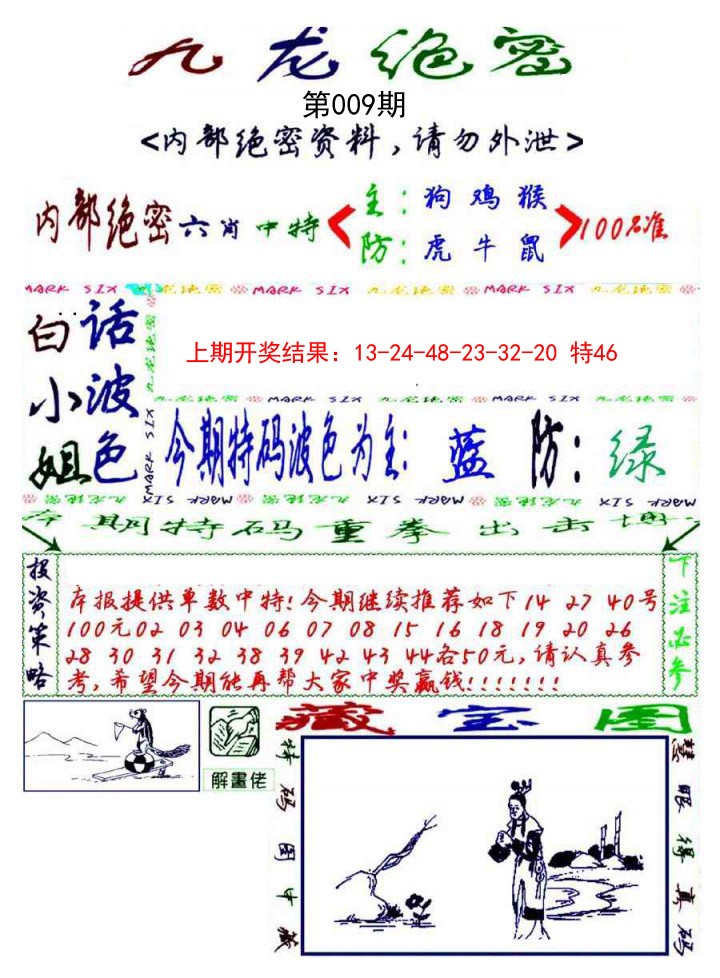 九龙绝密
第009期
<内部绝密资料，请勿外泄>
内部绝密六肖中特
主：狗 鸡 猴
防：虎 牛 鼠
100%准
MARK SIX 九龙绝密 MARK SIX 九龙绝密 MARK SIX 九龙绝密
白话
小波
姐色
九龙绝密
MARK SIX
上期开奖结果：13-24-48-23-32-20 特46
九龙绝密 MARK SIX 九龙绝密 MARK SIX 九龙绝密
今期特码波色为主：蓝 防：绿
九龙绝密 MARK SIX 九龙绝密 MARK SIX 九龙绝密 MARK SIX
本期特码重拳出击博
投资策略
本报提供单数中特！今期继续推荐如下14 27 40号
100元02 03 04 06 07 08 15 16 18 19 20 26
28 30 31 32 38 39 42 43 44各50元，请认真参
考，希望今期能再帮大家中奖赢钱！！！！！！！
下注必参
解畫佬
藏宝图
特码图中藏
慧眼得真码